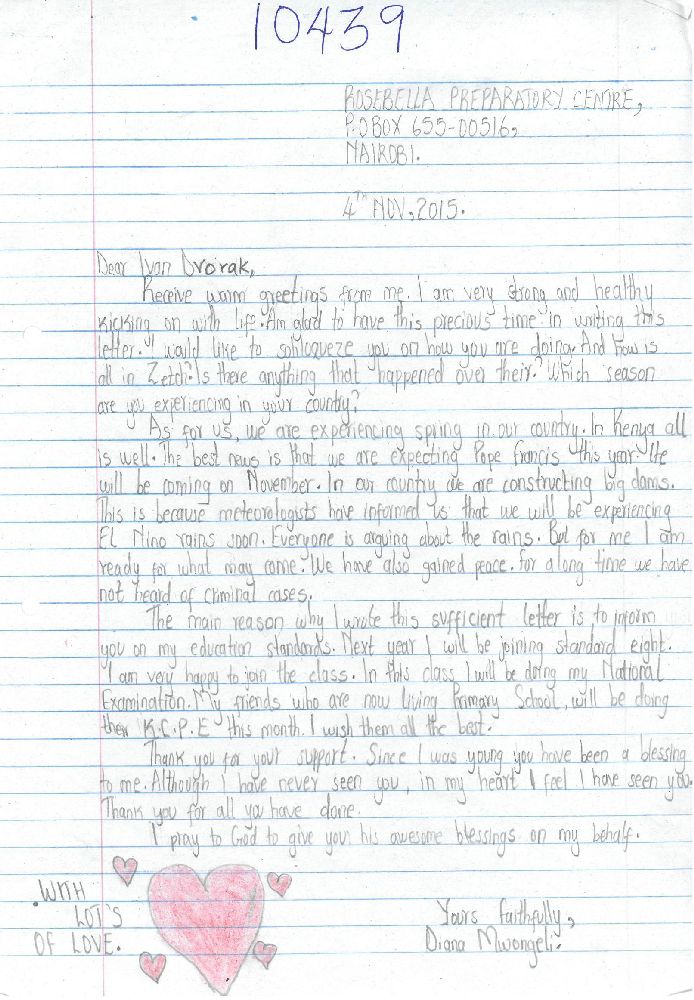 10439
ROSEBELLA PREPARATORY CENTRE,
P.O BOX 655-00516,
NAIROBI.
4TH NOV, 2015.
Dear Ivan Dvorak,
Receive warm greetings from me. I am very strong and healthy
kicking on with life. Am glad to have this precious time in writing this
letter. I would like to soliloqueze you on how you are doing. And how is
all in Zetch? Is there anything that happened over their? Which season
are you experiencing in your country?
As for us, we are experiencing spring in our country. In Kenya all
is well. The best news is that we are expecting Pope Francis this year. He
will be coming on November. In our country we are constructing big dams.
This is because meteorologists have informed us that we will be experiencing
El Nino rains soon. Everyone is arguing about the rains. But for me I am
ready for what may come. We have also gained peace. For a long time we have
not heard of criminal cases.
The main reason why I wrote this sufficient letter is to inform
you on my education standards. Next year I will be joining standard eight.
I am very happy to join the class. In this class I will be doing my National
Examination. My friends who are now living Primary School, will be doing
their K.C.P.E this month. I wish them all the best.
Thank you for your support. Since I was young you have been a blessing
to me. Although I have never seen you, in my heart I feel I have seen you.
Thank you for all you have done.
I pray to God to give you his awesome blessings on my behalf.
.WITH
LOT'S
OF LOVE.
Yours faithfully,
Diana Mwongeli.